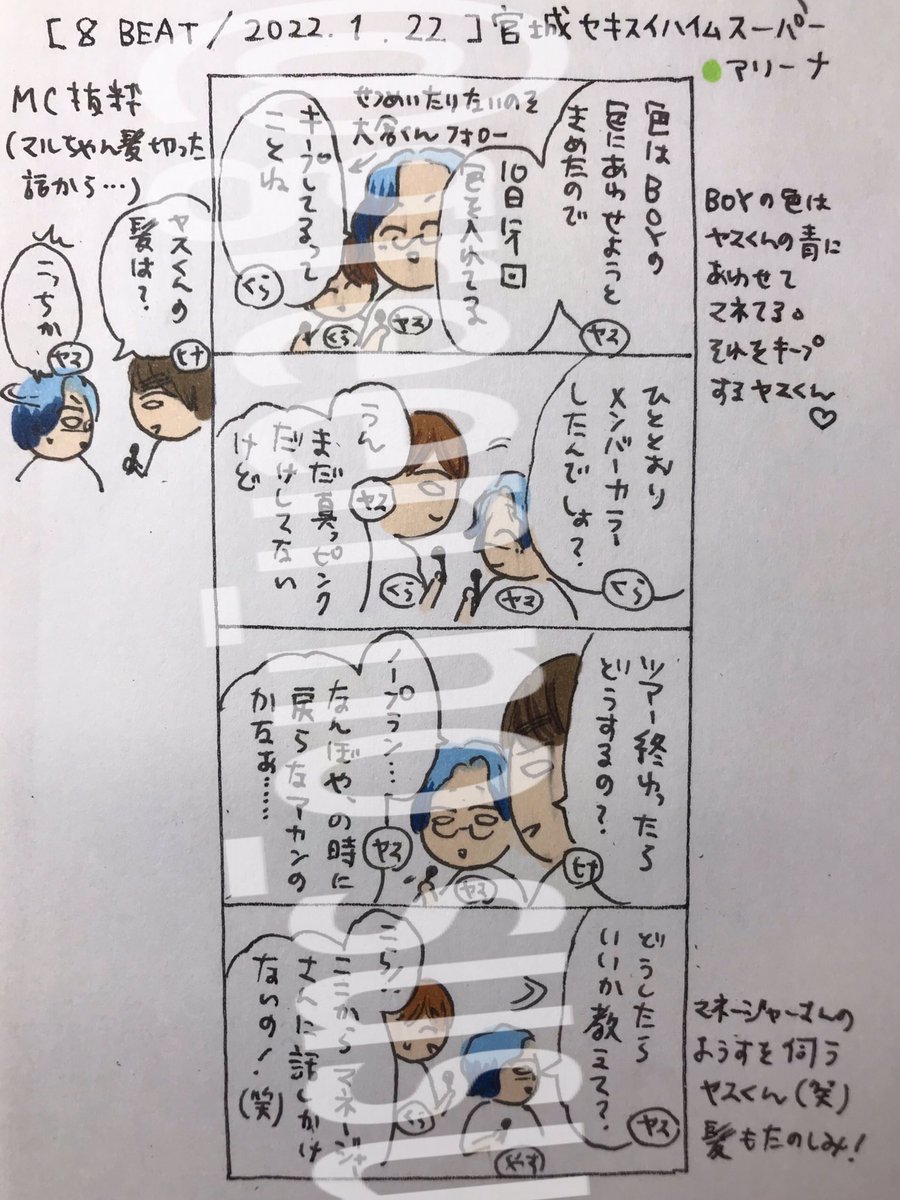 [8 BEAT/2022.1.22]宮城セキスイハイムスーパー
アリーナ
MC抜粋
(マルちゃん髪切った
話から…)
ヤスくんの
髪は?
ヒナ
こっちか
ヤス
色はBOYの
色にあわせようと
きめたので
ヤス
10日に1回
色を入れてる
せつめいたりないのを
大倉くんフォロー
キープしてるって
ことね
くら
くら
ヤス
BOYの色は
ヤスくんの青に
あわせて
マネてる。
それをキープ
するヤスくん♡
ひととおり
メンバーカラー
したんでしょ?
くら
うん
まだ真っピンク
だけしてない
けど
ヤス
くら
ヤス
ツアー終わったら
どうするの?
ヒナ
ノープラン…
なんぼや、の時に
戻らなアーカンの
か友あ……
ヤス
ヤス
どうしたら
いいか教えて?
ヤス
こら!
ここからマネージャー
さんに話しかけ
ないの!(笑)
くら
やす
マネージャーさんの
ようすを伺う
ヤスくん(笑)
髪もたのしみ!